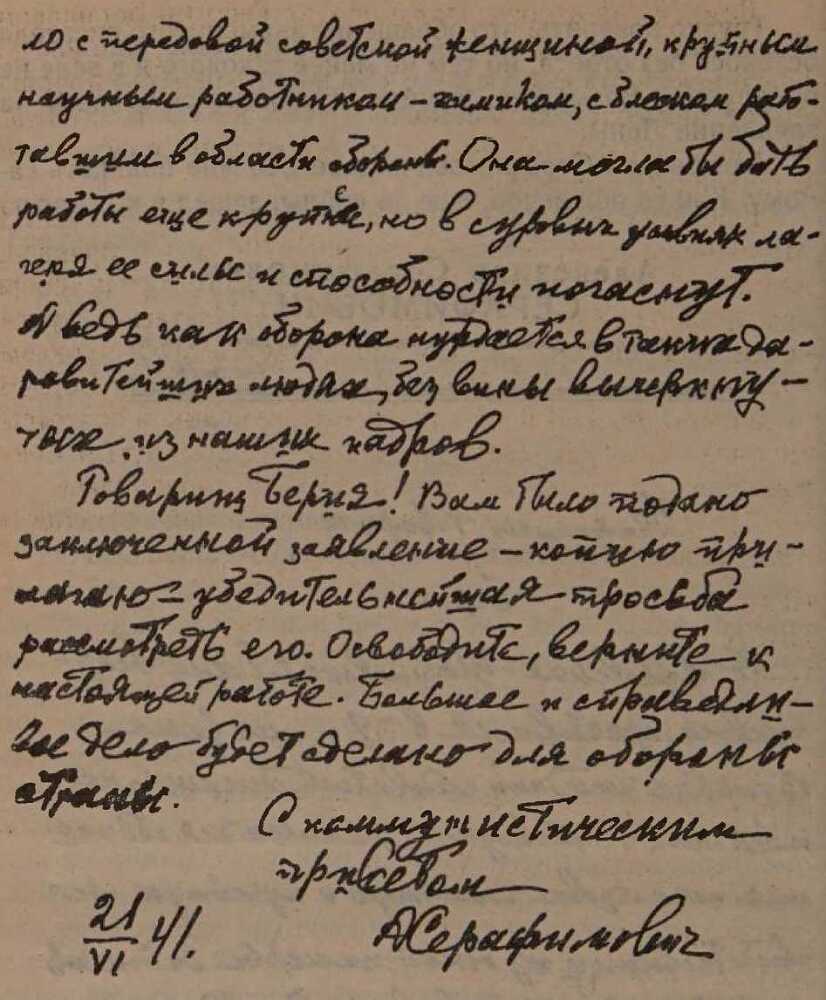 ло с передовой советской женщиной, крупным
научным работником – химиком, с блеском рабо-
тавшим в области обороны. Она могла бы дать
работы еще крупнее, но в суровых условиях ла-
геря ее силы и способности погаснут.
А ведь как оборона нуждается в таких да-
ровитейших людях, без вины вычеркну-
тых из наших кадров.
Товарищ Берия! Вам было подано
заключенной заявление – копию при-
лагаю – убедительнейшая просьба
рассмотреть его. Освободите, верните к
настоящей работе. Большое и справедли-
вое дело будет сделано для обороны
страны.
С коммунистическим
приветом
21/VI 41.
А Серафимович